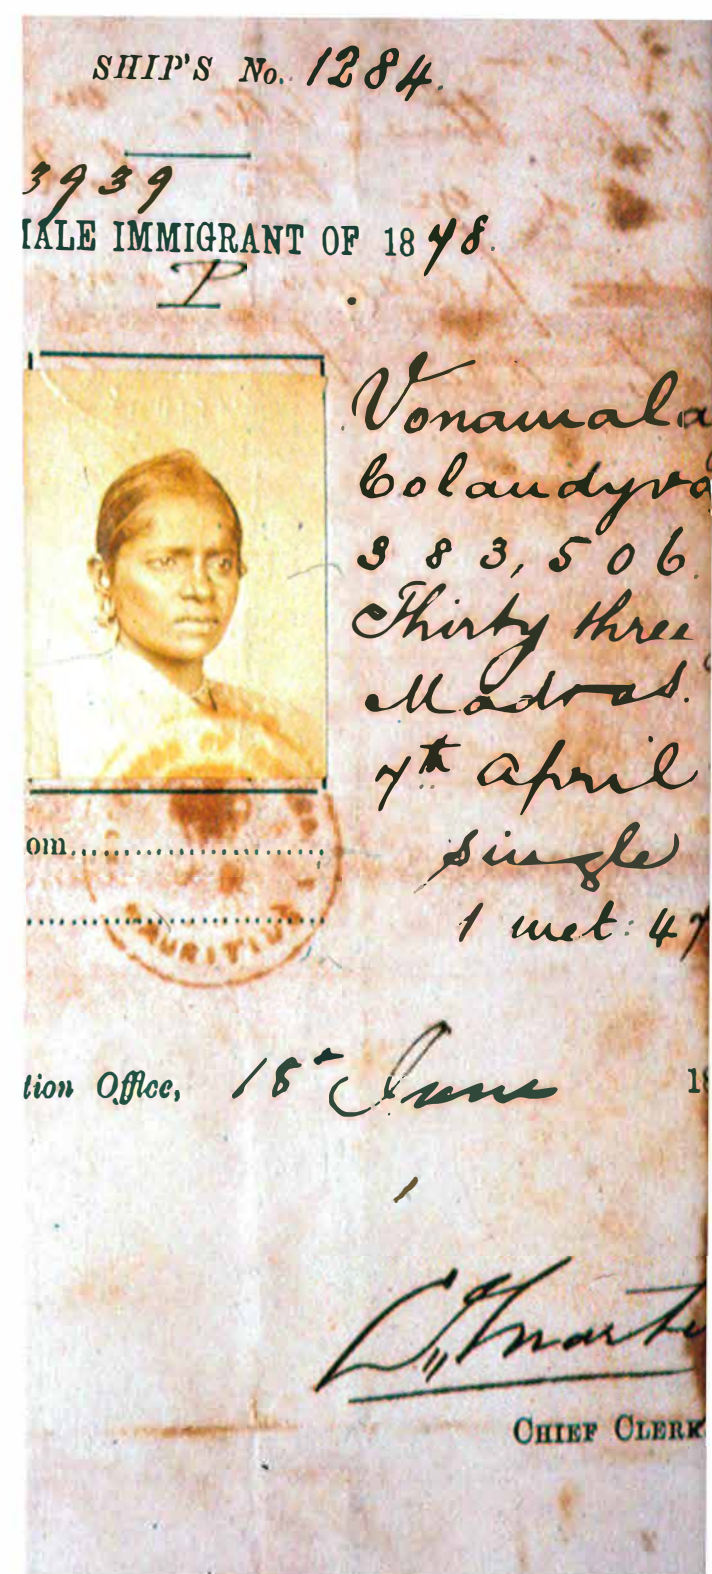 SHIP'S No. 1284.
3939
MALE IMMIGRANT OF 1878.
P
Vonamala
Colaudyva
383,506.
Thirty three
Madras.
7th April
single
1 met: 47
om
MAURITIUS
tion Office, 18th June 18
CHIEF CLERK